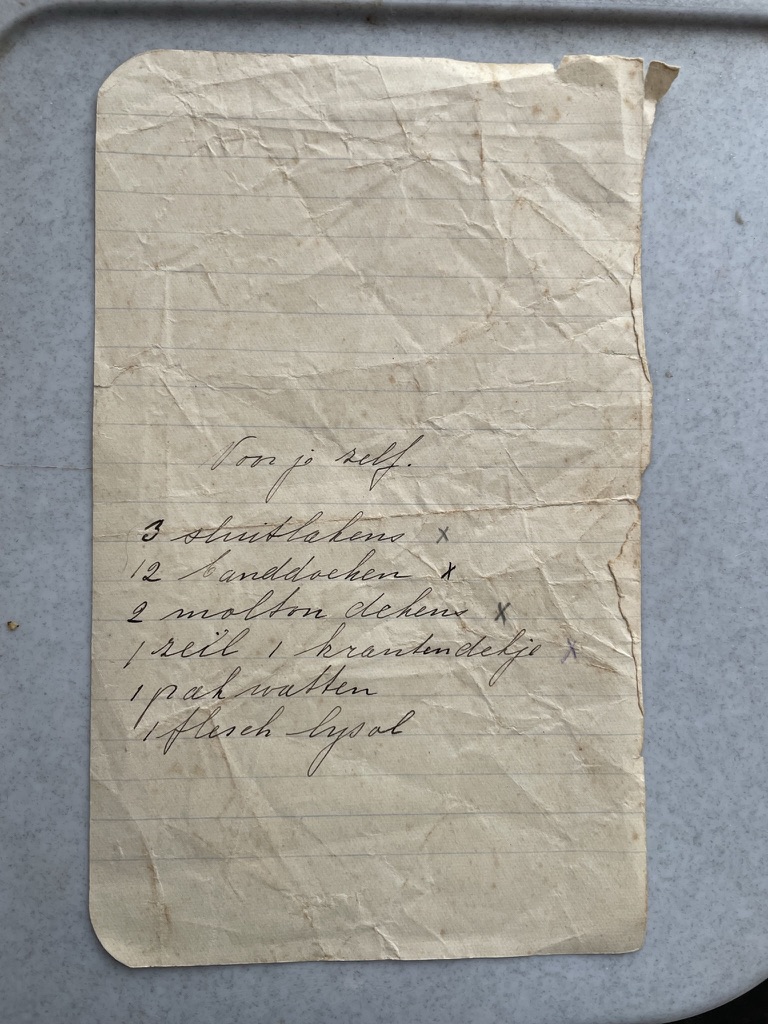 Voor je zelf.
3 sluitlakens x
12 banddoeken x
2 molton dekens x
1 zeil 1 krantendekje x
1 pak watten
1 flesch lysol